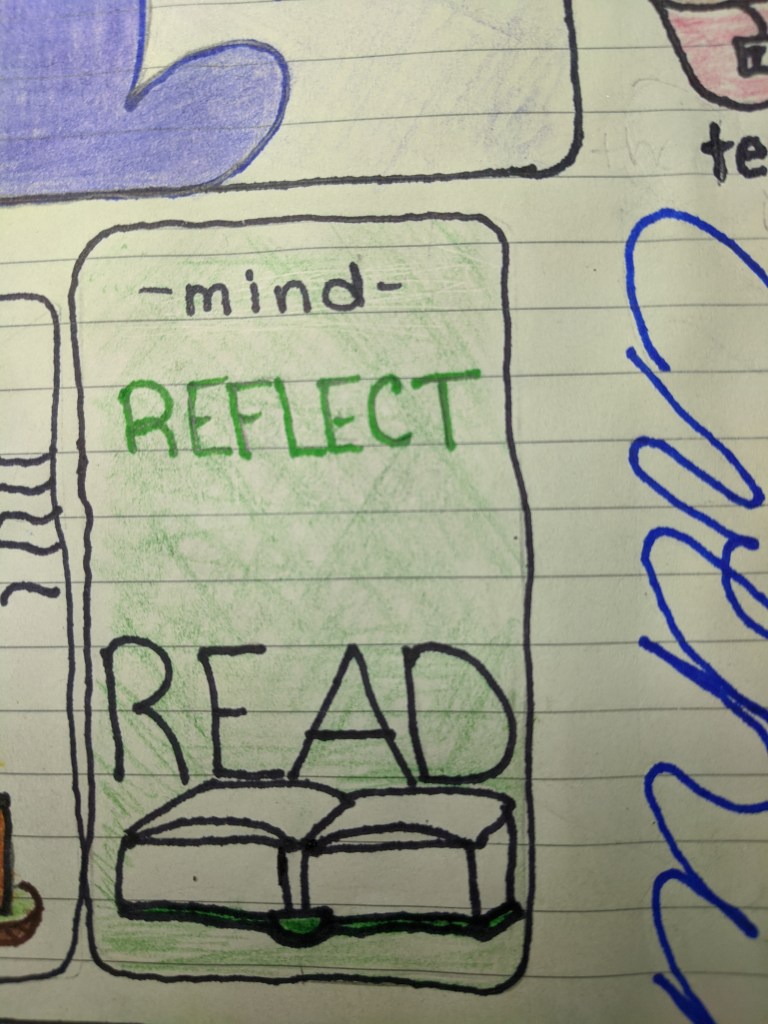 -mind-
REFLECT
READ
te